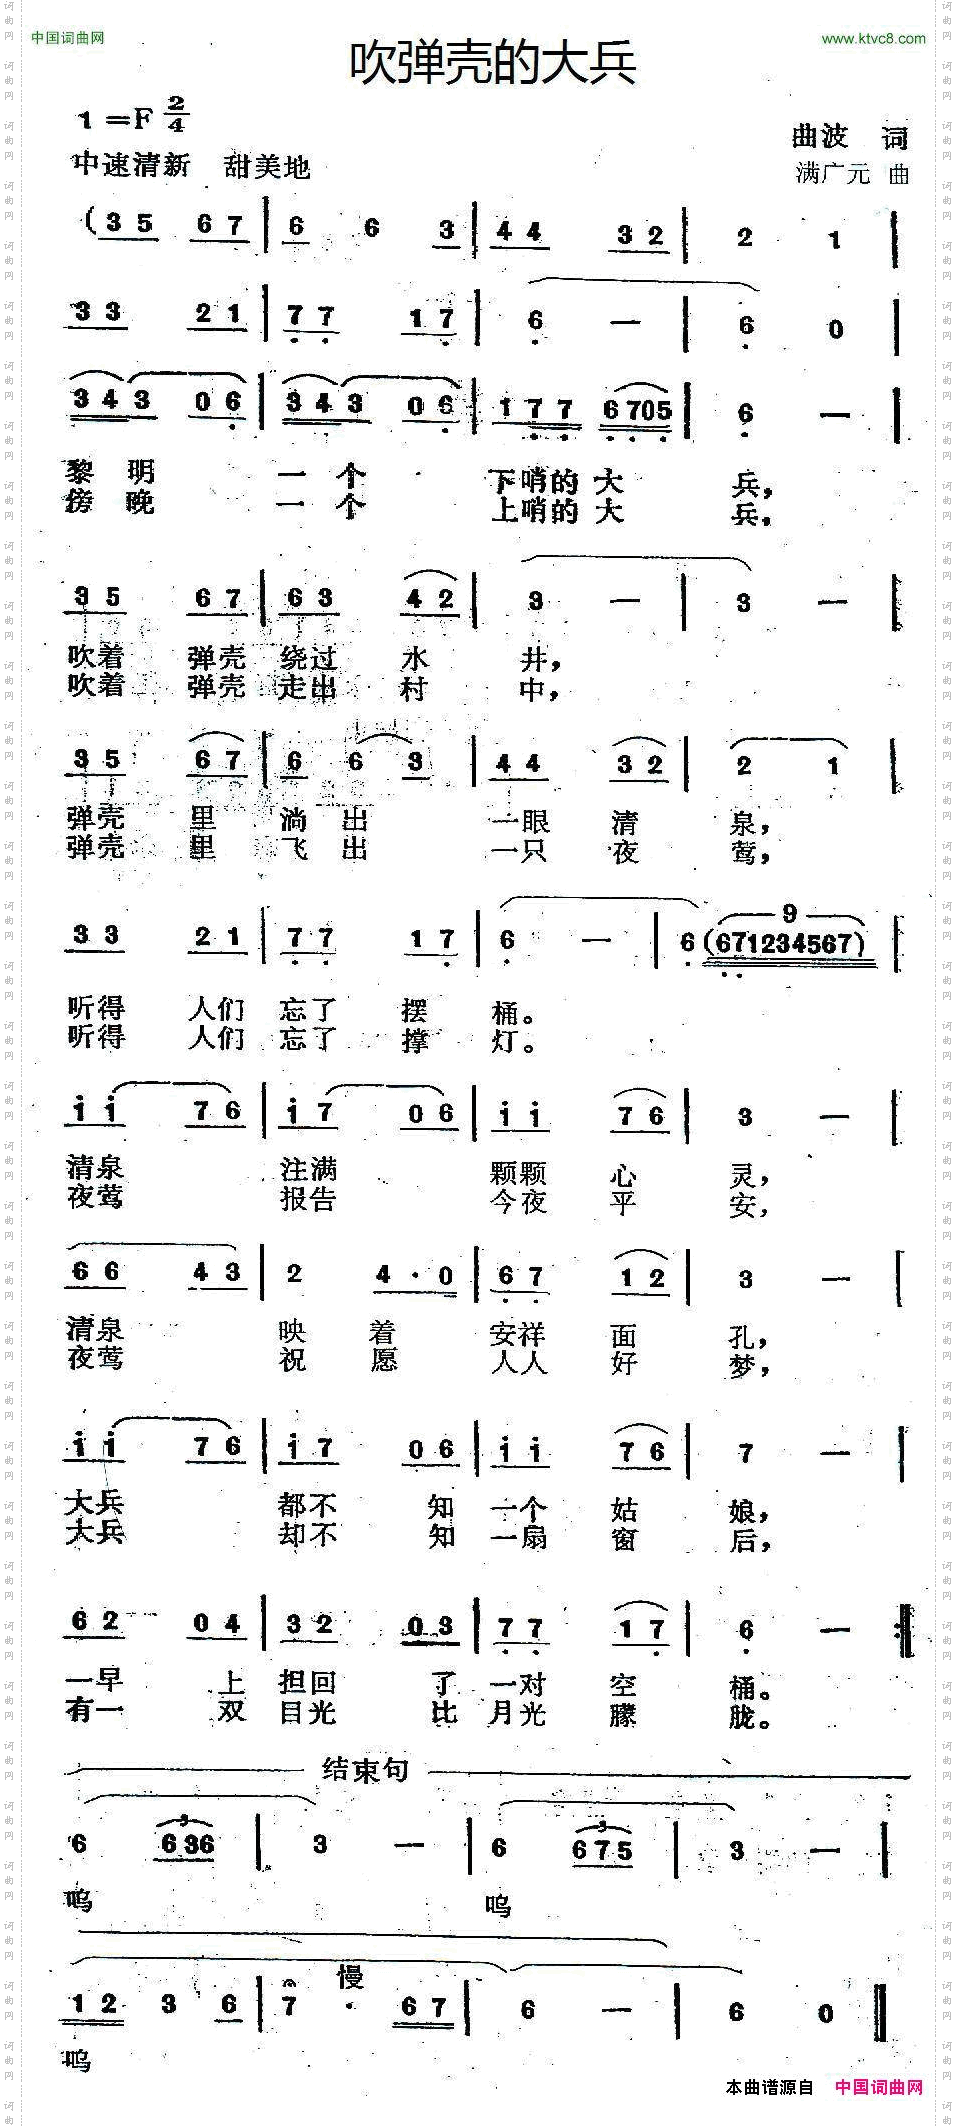 中国词曲网
www.ktvc8.com
吹弹壳的大兵
1=F 2/4
曲波 词
中速清新 甜美地
满广元 曲
(3 5 6 7 | 6 6 3 | 4 4 3 2 | 2 1 |
3 3 2 1 | 7 7 1 7 | 6 — | 6 0
3 4 3 0 6 | 3 4 3 0 6 | 1 7 7 6 7 0 5 | 6 —
黎明 一个 下哨的大 兵，
傍晚 一个 上哨的大 兵，
3 5 6 7 | 6 3 4 2 | 3 — | 3 — |
吹着 弹壳 绕过 水 井，
吹着 弹壳 走出 村 中，
3 5 6 7 | 6 6 3 | 4 4 3 2 | 2 1 |
弹壳 里 淌 出 一眼 清 泉，
弹壳 里 飞 出 一只 夜 莺，
9
3 3 2 1 | 7 7 1 7 | 6 — | 6 (671234567) |
听得 人们 忘了 摆 桶。
听得 人们 忘了 撑 灯。
i i 7 6 | i 7 0 6 | i i 7 6 | 3 — |
清泉 注满 颗颗 心 灵，
夜莺 报告 今夜 平 安，
6 6 4 3 | 2 4 · 0 | 6 7 1 2 | 3 — |
清泉 映 着 安祥 面 孔，
夜莺 祝 愿 人人 好 梦，
i i 7 6 | i 7 0 6 | i i 7 6 | 7 — |
大兵 都不 知 一个 姑 娘，
大兵 却不 知 一扇 窗 后，
6 2 0 4 | 3 2 0 3 | 7 7 1 7 | 6 — :‖
一早 上 担回 了 一对 空 桶。
有一 双 目光 比 月光 朦 胧。
结束句
3 3
6 6 3 6 | 3 — | 6 6 7 5 | 3 — |
呜 呜
慢
1 2 3 6 | 7 · 6 7 | 6 — | 6 0 ‖
呜
本曲谱源自 中国词曲网